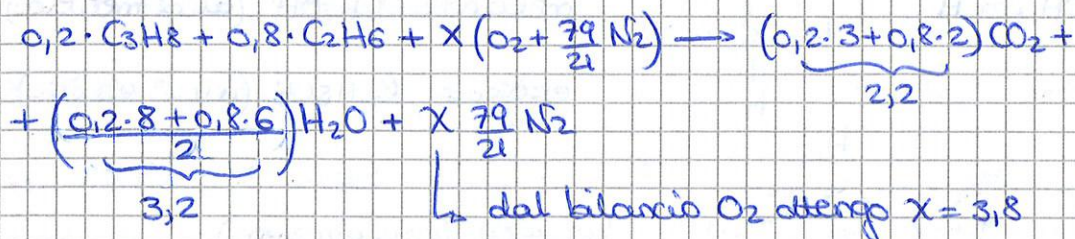 0,2·C3H8 + 0,8·C2H6 + X(O2+ 79/21 N2) → (0,2·3+0,8·2)CO2 +
2,2
+ (0,2·8+0,8·6/2)H2O + X 79/21 N2
3,2 ↳ dal bilancio O2 ottengo X=3,8